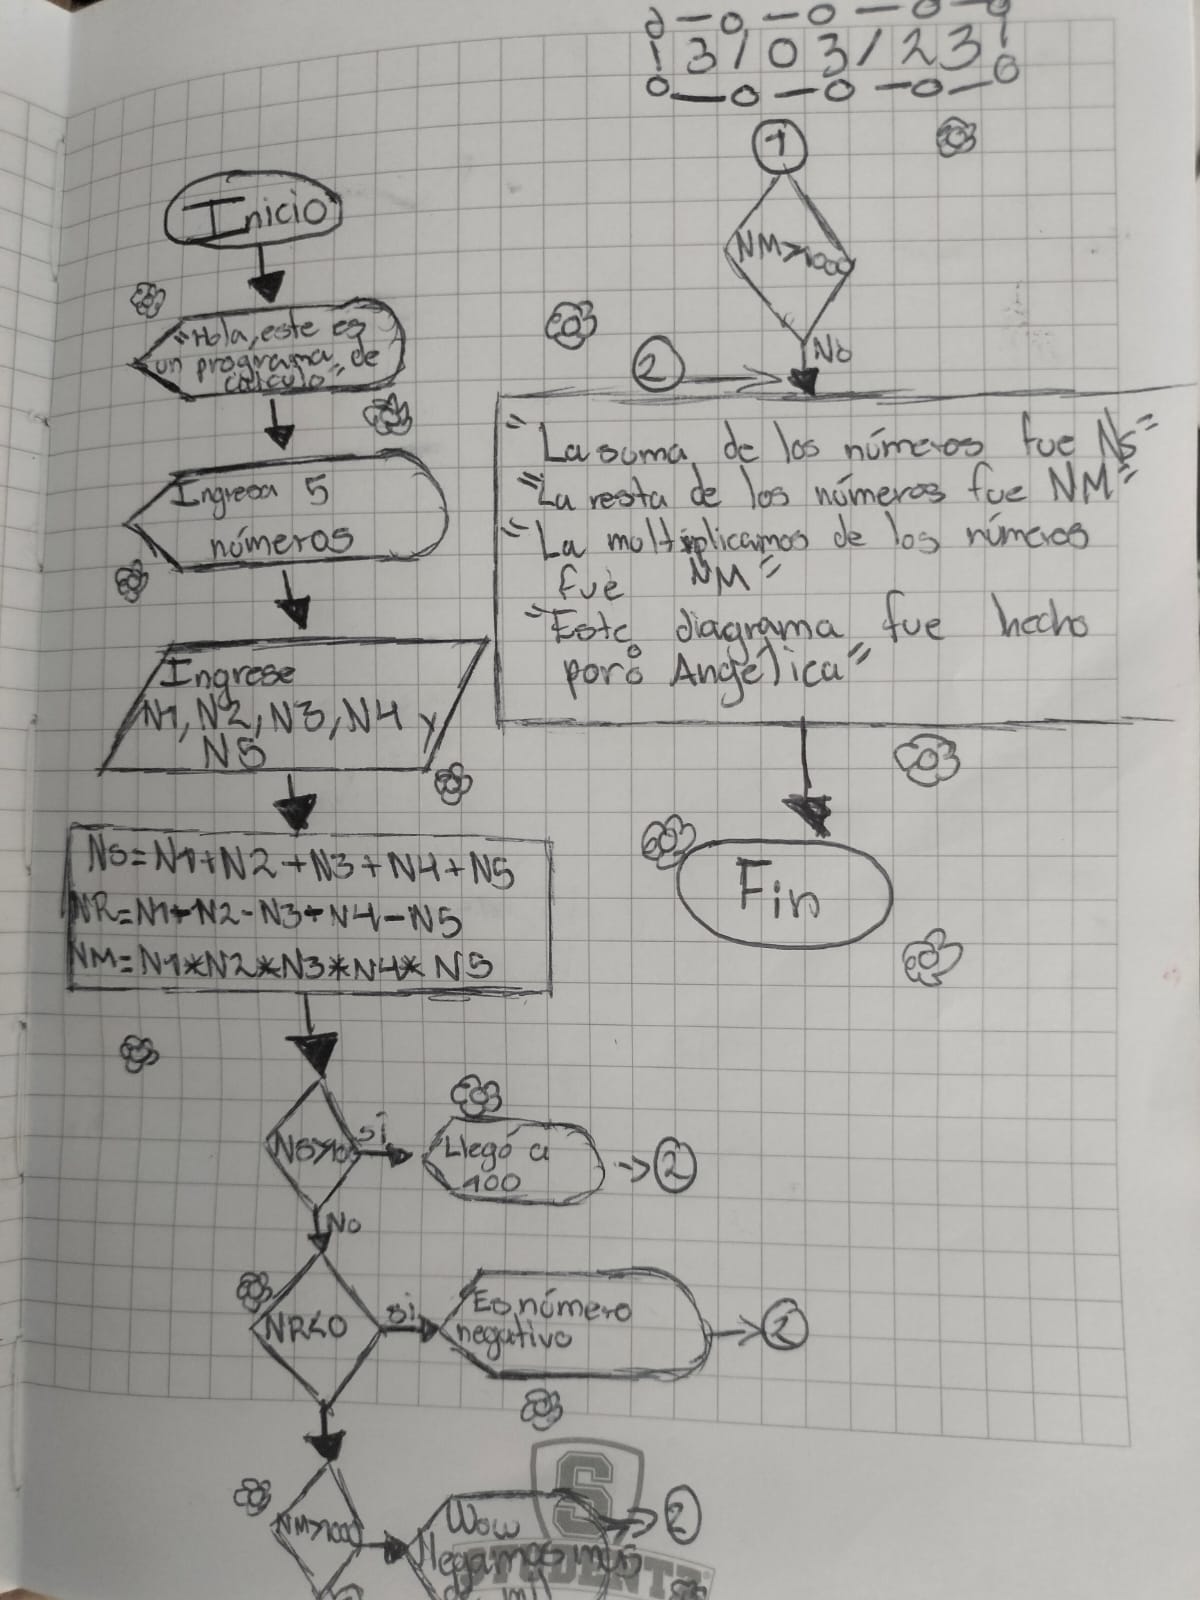 13/03/23
Inicio
"Hola, este es
un programa de
cálculo"
Ingresa 5
números
Ingrese
N1, N2, N3, N4 y
N5
NS=N1+N2+N3+N4+N5
NR=N1-N2-N3-N4-N5
NM=N1*N2*N3*N4*N5
si
Llegó a
100
2
No
NR<0
si
Es número
negativo
2
NM>1000
Wow
llegamos mas
de mil
2
1
NM>1000
No
2
"La suma de los números fue Ns"
"La resta de los números fue NM"
"La multiplicamos de los números
fue NM"
"Este diagrama fue hecho
por: Angélica"
Fin
S
STUDENTZ